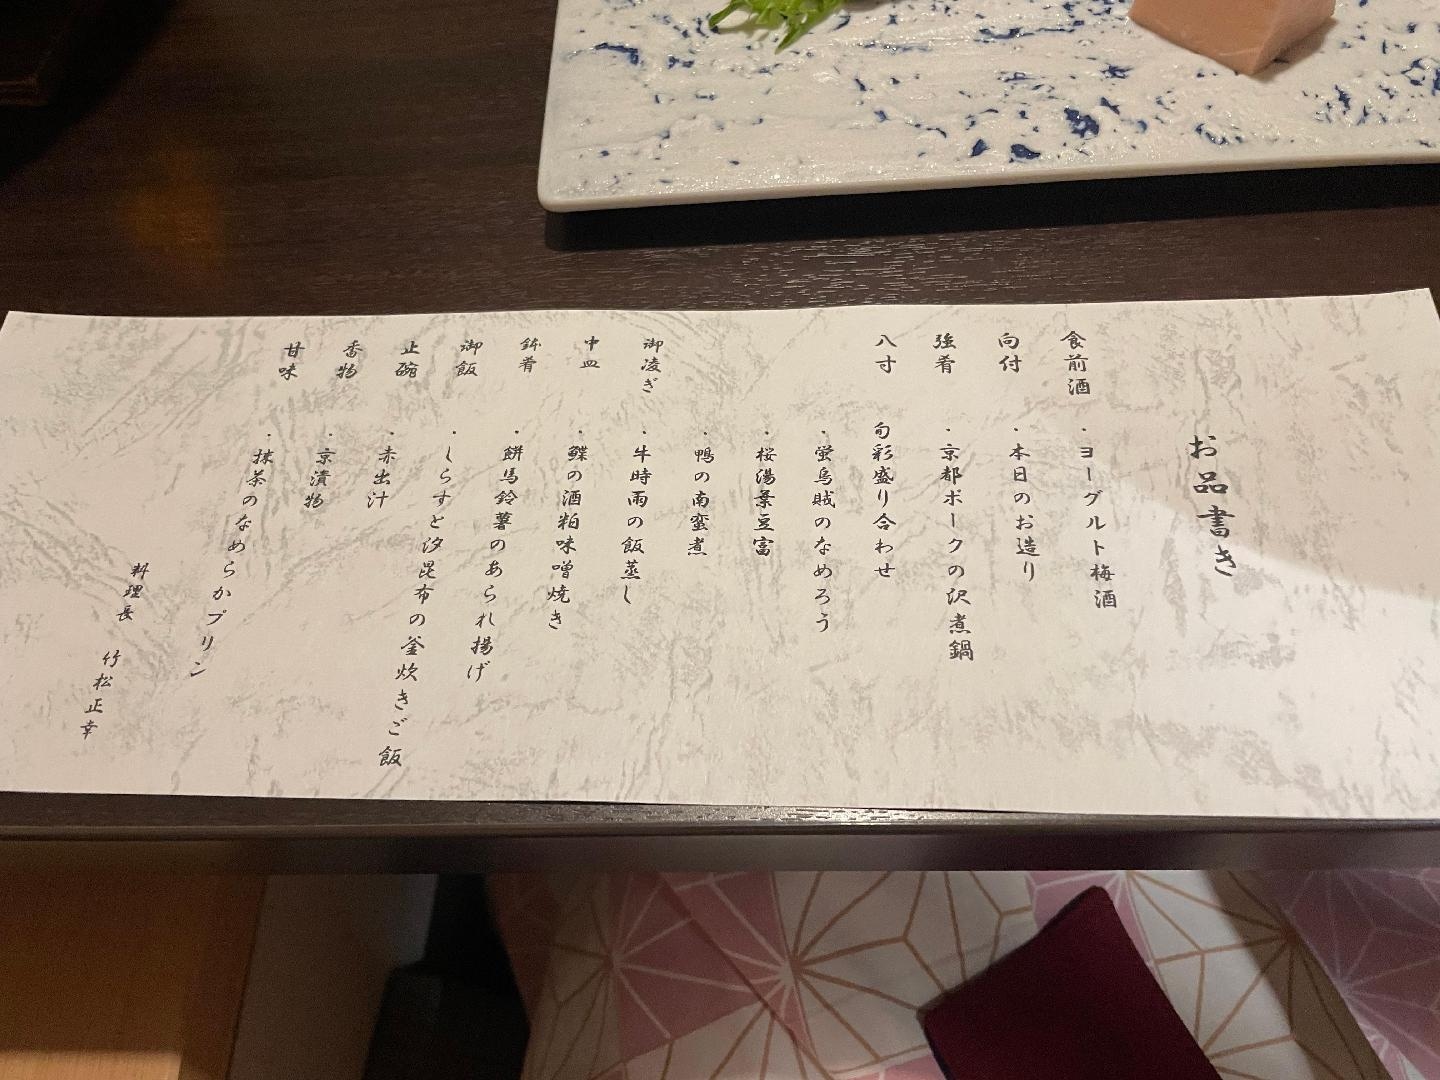 お品書き
食前酒 ・ヨーグルト梅酒
向付 ・本日のお造り
強肴 ・京都ポークの沢煮鍋
八寸 旬彩盛り合わせ
・蛍烏賊のなめろう
・桜湯葉豆富
・鴨の南蛮煮
御凌ぎ ・牛時雨の飯蒸し
中皿 ・鰈の酒粕味噌焼き
鉢肴 ・餅馬鈴薯のあられ揚げ
御飯 ・しらすと汐昆布の釜炊きご飯
止碗 ・赤出汁
香物 ・京漬物
甘味 ・抹茶のなめらかプリン
料理長 竹松正幸